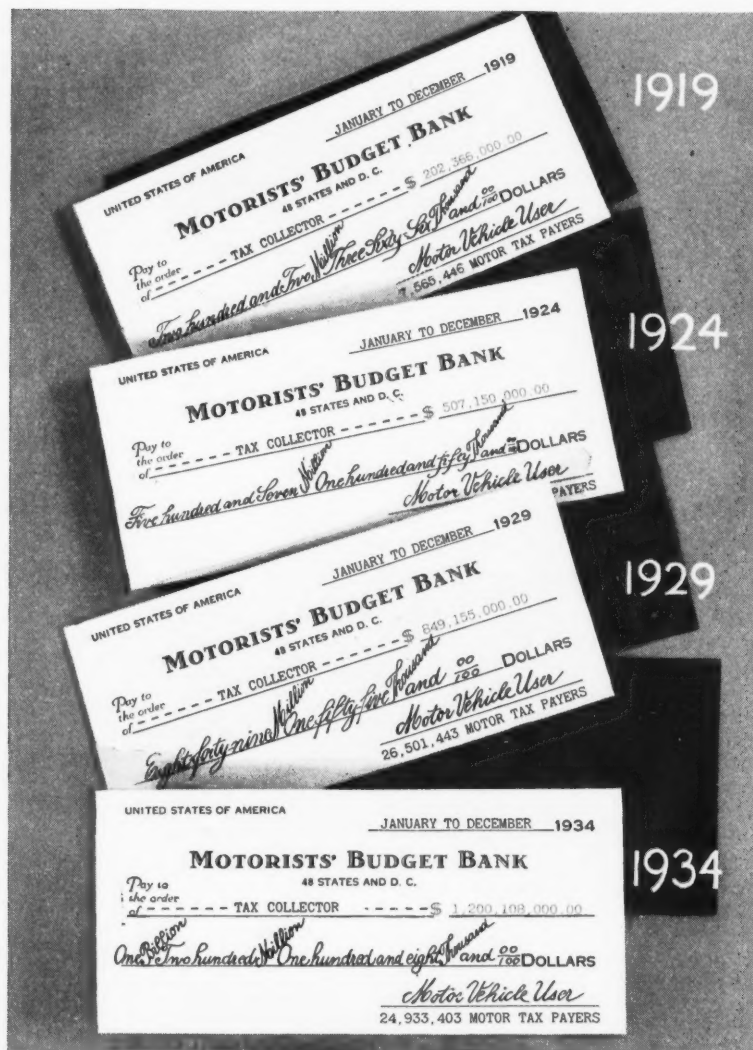 1919
JANUARY TO DECEMBER 1919
UNITED STATES OF AMERICA
MOTORISTS' BUDGET BANK
48 STATES AND D. C.
Pay to
the order
of - - - - - TAX COLLECTOR - - - - - - $ 202,366,000.00
Two hundred and Two Million Three Sixty Six Thousand and 00/100 DOLLARS
Motor Vehicle User
7,565,446 MOTOR TAX PAYERS
1924
JANUARY TO DECEMBER 1924
UNITED STATES OF AMERICA
MOTORISTS' BUDGET BANK
48 STATES AND D. C.
Pay to
the order
of - - - - - TAX COLLECTOR - - - - - - $ 507,150,000.00
Five hundred and Seven Million One hundred and fifty Thousand and 00/100 DOLLARS
Motor Vehicle User
PAYERS
1929
JANUARY TO DECEMBER 1929
UNITED STATES OF AMERICA
MOTORISTS' BUDGET BANK
48 STATES AND D. C.
Pay to
the order
of - - - - - TAX COLLECTOR - - - - - - $ 849,155,000.00
Eight forty-nine Million One fifty five Thousand and 00/100 DOLLARS
Motor Vehicle User
26,501,443 MOTOR TAX PAYERS
1934
UNITED STATES OF AMERICA
JANUARY TO DECEMBER 1934
MOTORISTS' BUDGET BANK
48 STATES AND D. C.
Pay to
the order
of - - - - - TAX COLLECTOR - - - - - $ 1,200,108,000.00
One Billion Two hundred Million One hundred and eight Thousand and 00/100 DOLLARS
Motor Vehicle User
24,933,403 MOTOR TAX PAYERS